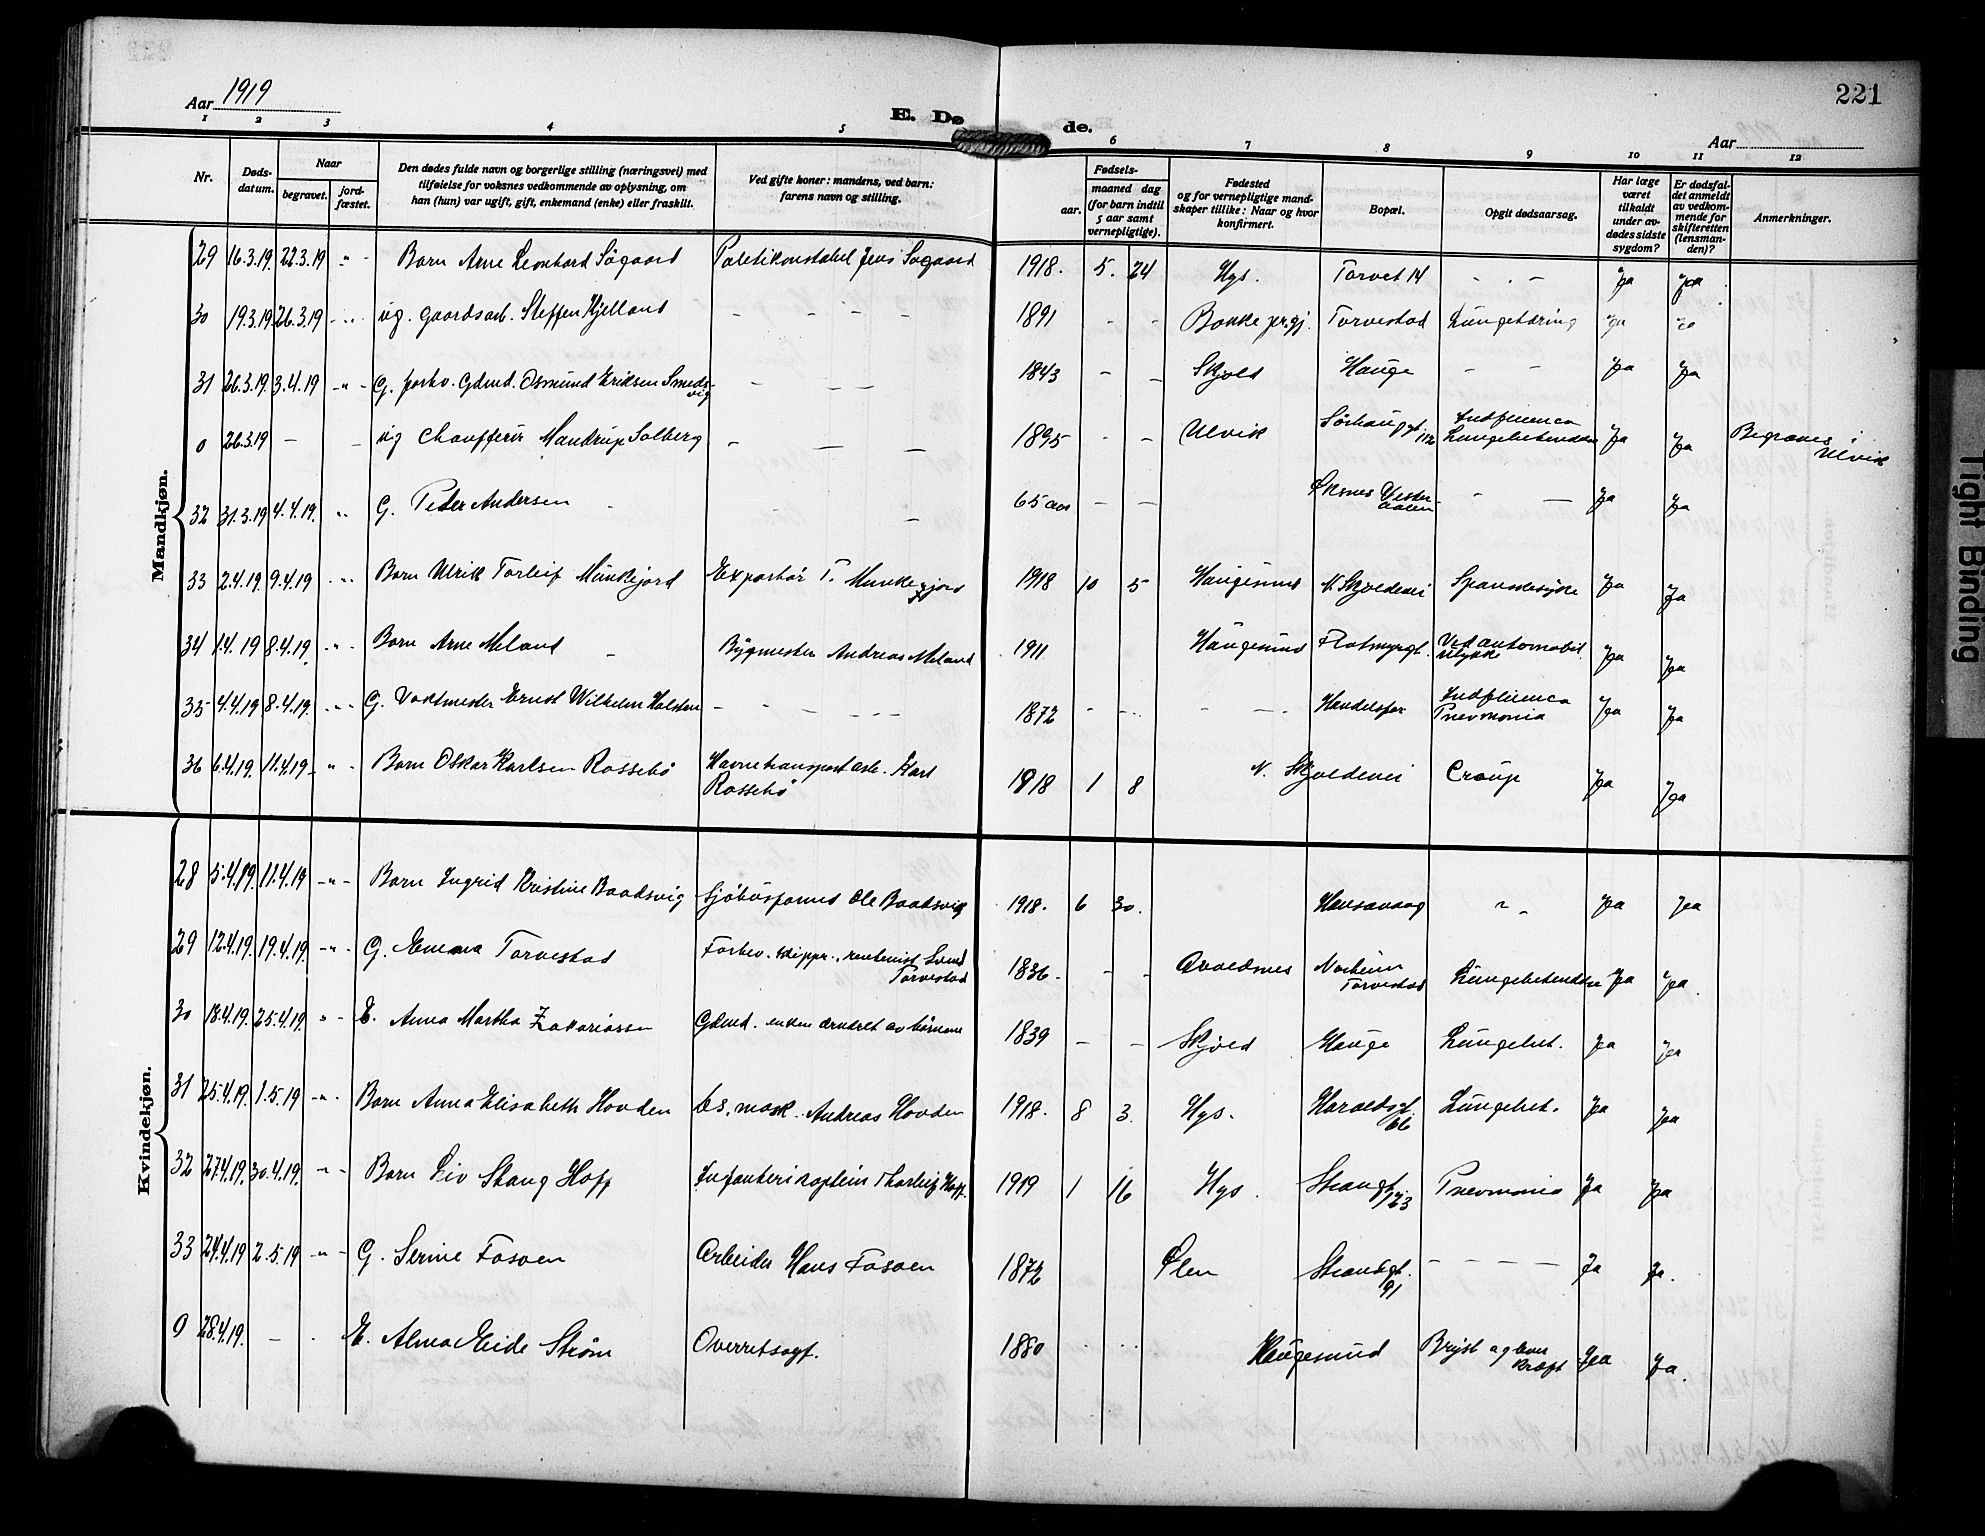 221
Aar 1919
E. Dø de.
Aar
1 2 3 4 5 6 7 8 9 10 11 12
Nr.
Døds-
datum.
Naar
begravet.
jord-
fæstet.
Den dødes fulde navn og borgerlige stilling (næringsvei) med
tilføielse for voksnes vedkommende av oplysning, om
han (hun) var ugift, gift, enkemand (enke) eller fraskilt.
Ved gifte koner: mandens, ved barn:
farens navn og stilling.
Fødsels-
aar.
maaned dag
(for barn indtil
5 aar samt
vernepligtige).
Fødested
og for vernepligtige mand-
skaper tillike: Naar og hvor
konfirmert.
Bopæl.
Opgit dødsaarsag.
Har læge
været
tilkaldt
under av-
dødes sidste
sygdom?
Er dødsfal-
det anmeldt
av vedkom-
mende for
skifteretten
(lensman-
den)?
Anmerkninger.
Mandkjøn.
29 16.3.19. 22.3.19 -"- Barn Arne Leonhard Sögaard Politikonstabel Jens Sögaard 1918. 5. 24 Hgs. Torvet 14 - . - Ja Ja
30 19.3.19. 26.3.19 -"- ug. gaardsarb. Steffen Kjelland - - - - - 1891 - - Bokke pr.gj. Torvestad Lungetæring Ja Ja
31 26.3.19 3.4.19 -"- G. forhv. Gdmd. Osmund Eriksen Smeds-
vig - - - 1843 - - Skjold Hauge - - Ja Ja
0 26.3.19 - - ug Chaufför Mandrup Solberg - - - 1895 - - Ulvik Sörhaugt 112 Indfluenca
Lungebetendelse Ja Ja Begraves i
Ulvik
32 31.3.19 4.4.19. -"- G. Peder Andersen - - 65 aar - - Øksnes Vester-
aalen - - Ja Ja
33 2.4.19. 9.4.19 -"- Barn Ulrik Torleif Munkejord Exportør T. Munkejord 1918 10 5 Haugesund N. Skjoldevei Spanskesyke Ja Ja
34 1.4.19 8.4.19. -"- Barn Arne Meland Bygmester Andreas Meland 1911 Haugesund Flotmyrgt. Ved automobil
ulykke Ja Ja
35 4.4.19 8.4.19. -"- G. Vaktmester Ernst Wilhelm Holsten - - - - - 1872 - - - - Handelsfor Indfluenca
Pnevmonia Ja Ja
36 6.4.19. 11.4.19 -"- Barn Oskar Karlsen Rossebö Havnetransportarb. Karl
Rossebö 1918 1 8 N. Skjoldevei Croup Ja Ja
Kvindekjøn.
28 5.4.19. 11.4.19 -"- Barn Ingrid Kristine Baadsvig Sjöbusformd Ole Baadsvig 1918. 6 30. Hansavaag -"- Ja Ja
29 12.4.19. 19.4.19. -"- G. Emma Torvestad Forhv. skippr., rentenist Svend
Torvestad 1836 - - - Avaldsnes Norheim
Torvestad Lungebetendelse Ja Ja.
30 18.4.19. 25.4.19. -"- E. Anna Martha Zakariassen Gdmd. enken arndret av börnene 1839 - - Skjold Hauge Lungebet. Ja Ja
31 25.4.19. 1.5.19 -"- Barn Anna Elisabeth Hovden bs. mask. Andreas Hovden 1918. 8 3. Hgs. Haraldsgt.
66 Lungebet. Ja Ja
32 27.4.19. 30.4.19. -"- Barn Liv Stang Hoff Infanterikaptein Thorleif Hoff. 1919 1 16 Hgs. Strandgt.
123 Pnevmonia Ja Ja
33 24.4.19 2.5.19 -"- G. Serine Fosaen Arbeider Hans Fosaen 1872 Ølen Strandgt.
91 - - - - Ja Ja.
0 28.4.19. - - E. Alma Eide Strøm Overretssagf. 1880 Haugesund Bryst og lever
kræft Ja Ja.
Tight Binding